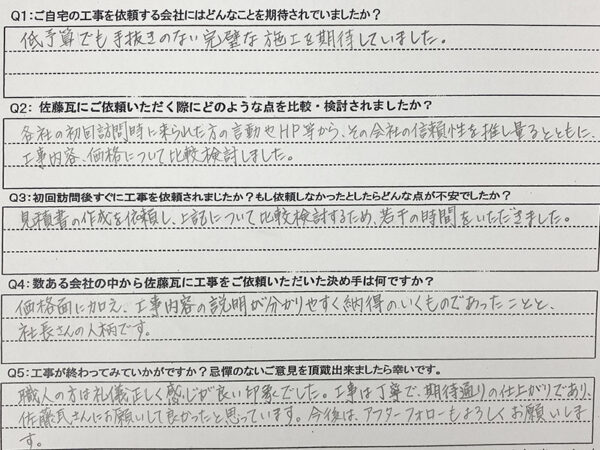 Q1:ご自宅の工事を依頼する会社にはどんなことを期待されていましたか？
低予算でも手抜きのない完璧な施工を期待していました。
Q2: 佐藤瓦にご依頼いただく際にどのような点を比較・検討されましたか？
各社の初回訪問時に来られた方の言動やHP等から、その会社の信頼性を推し量るとともに、
工事内容、価格について比較検討しました。
Q3:初回訪問後すぐに工事を依頼されましたか？もし依頼しなかったとしたらどんな点が不安でしたか？
見積書の作成を依頼し、上記について比較検討するため、若干の時間をいただきました。
Q4: 数ある会社の中から佐藤瓦に工事をご依頼いただいた決め手は何ですか？
価格面に加え、工事内容の説明が分かりやすく納得のいくものであったことと、
社長さんの人柄です。
Q5:工事が終わってみていかがですか？忌憚のないご意見を頂戴出来ましたら幸いです。
職人の方は礼儀正しく感じが良い印象でした。工事は丁寧で、期待通りの仕上がりであり、
佐藤瓦さんにお願いして良かったと思っています。今後は、アフターフォローもよろしくお願いしま
す。